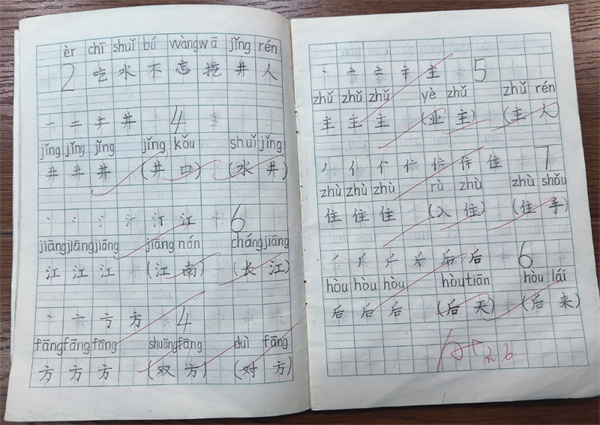 èr chī shuǐ bú wàng wā jǐng rén
2 吃水不忘挖井人
一 二 キ 井 4
jǐng jǐng jǐng jǐng kǒu shuǐ jǐng
井 井 井 (井口) (水井)
丶 冫 氵 汀 江 6
jiāng jiāng jiāng jiāng nán cháng jiāng
江 江 江 (江南) (长江)
丶 亠 方 方 4
fāng fāng fāng shuāng fāng duì fāng
方 方 方 (双方) (对方)
丶 亠 主 5
zhǔ zhǔ zhǔ yè zhǔ zhǔ rén
主 主 主 (业主) (主人)
丿 亻 住 7
zhù zhù zhù rù zhù zhù shǒu
住 住 住 (入住) (住手)
后 后 6
hòu hòu hòu hòu tiān hòu lái
后 后 后 (后天) (后来)